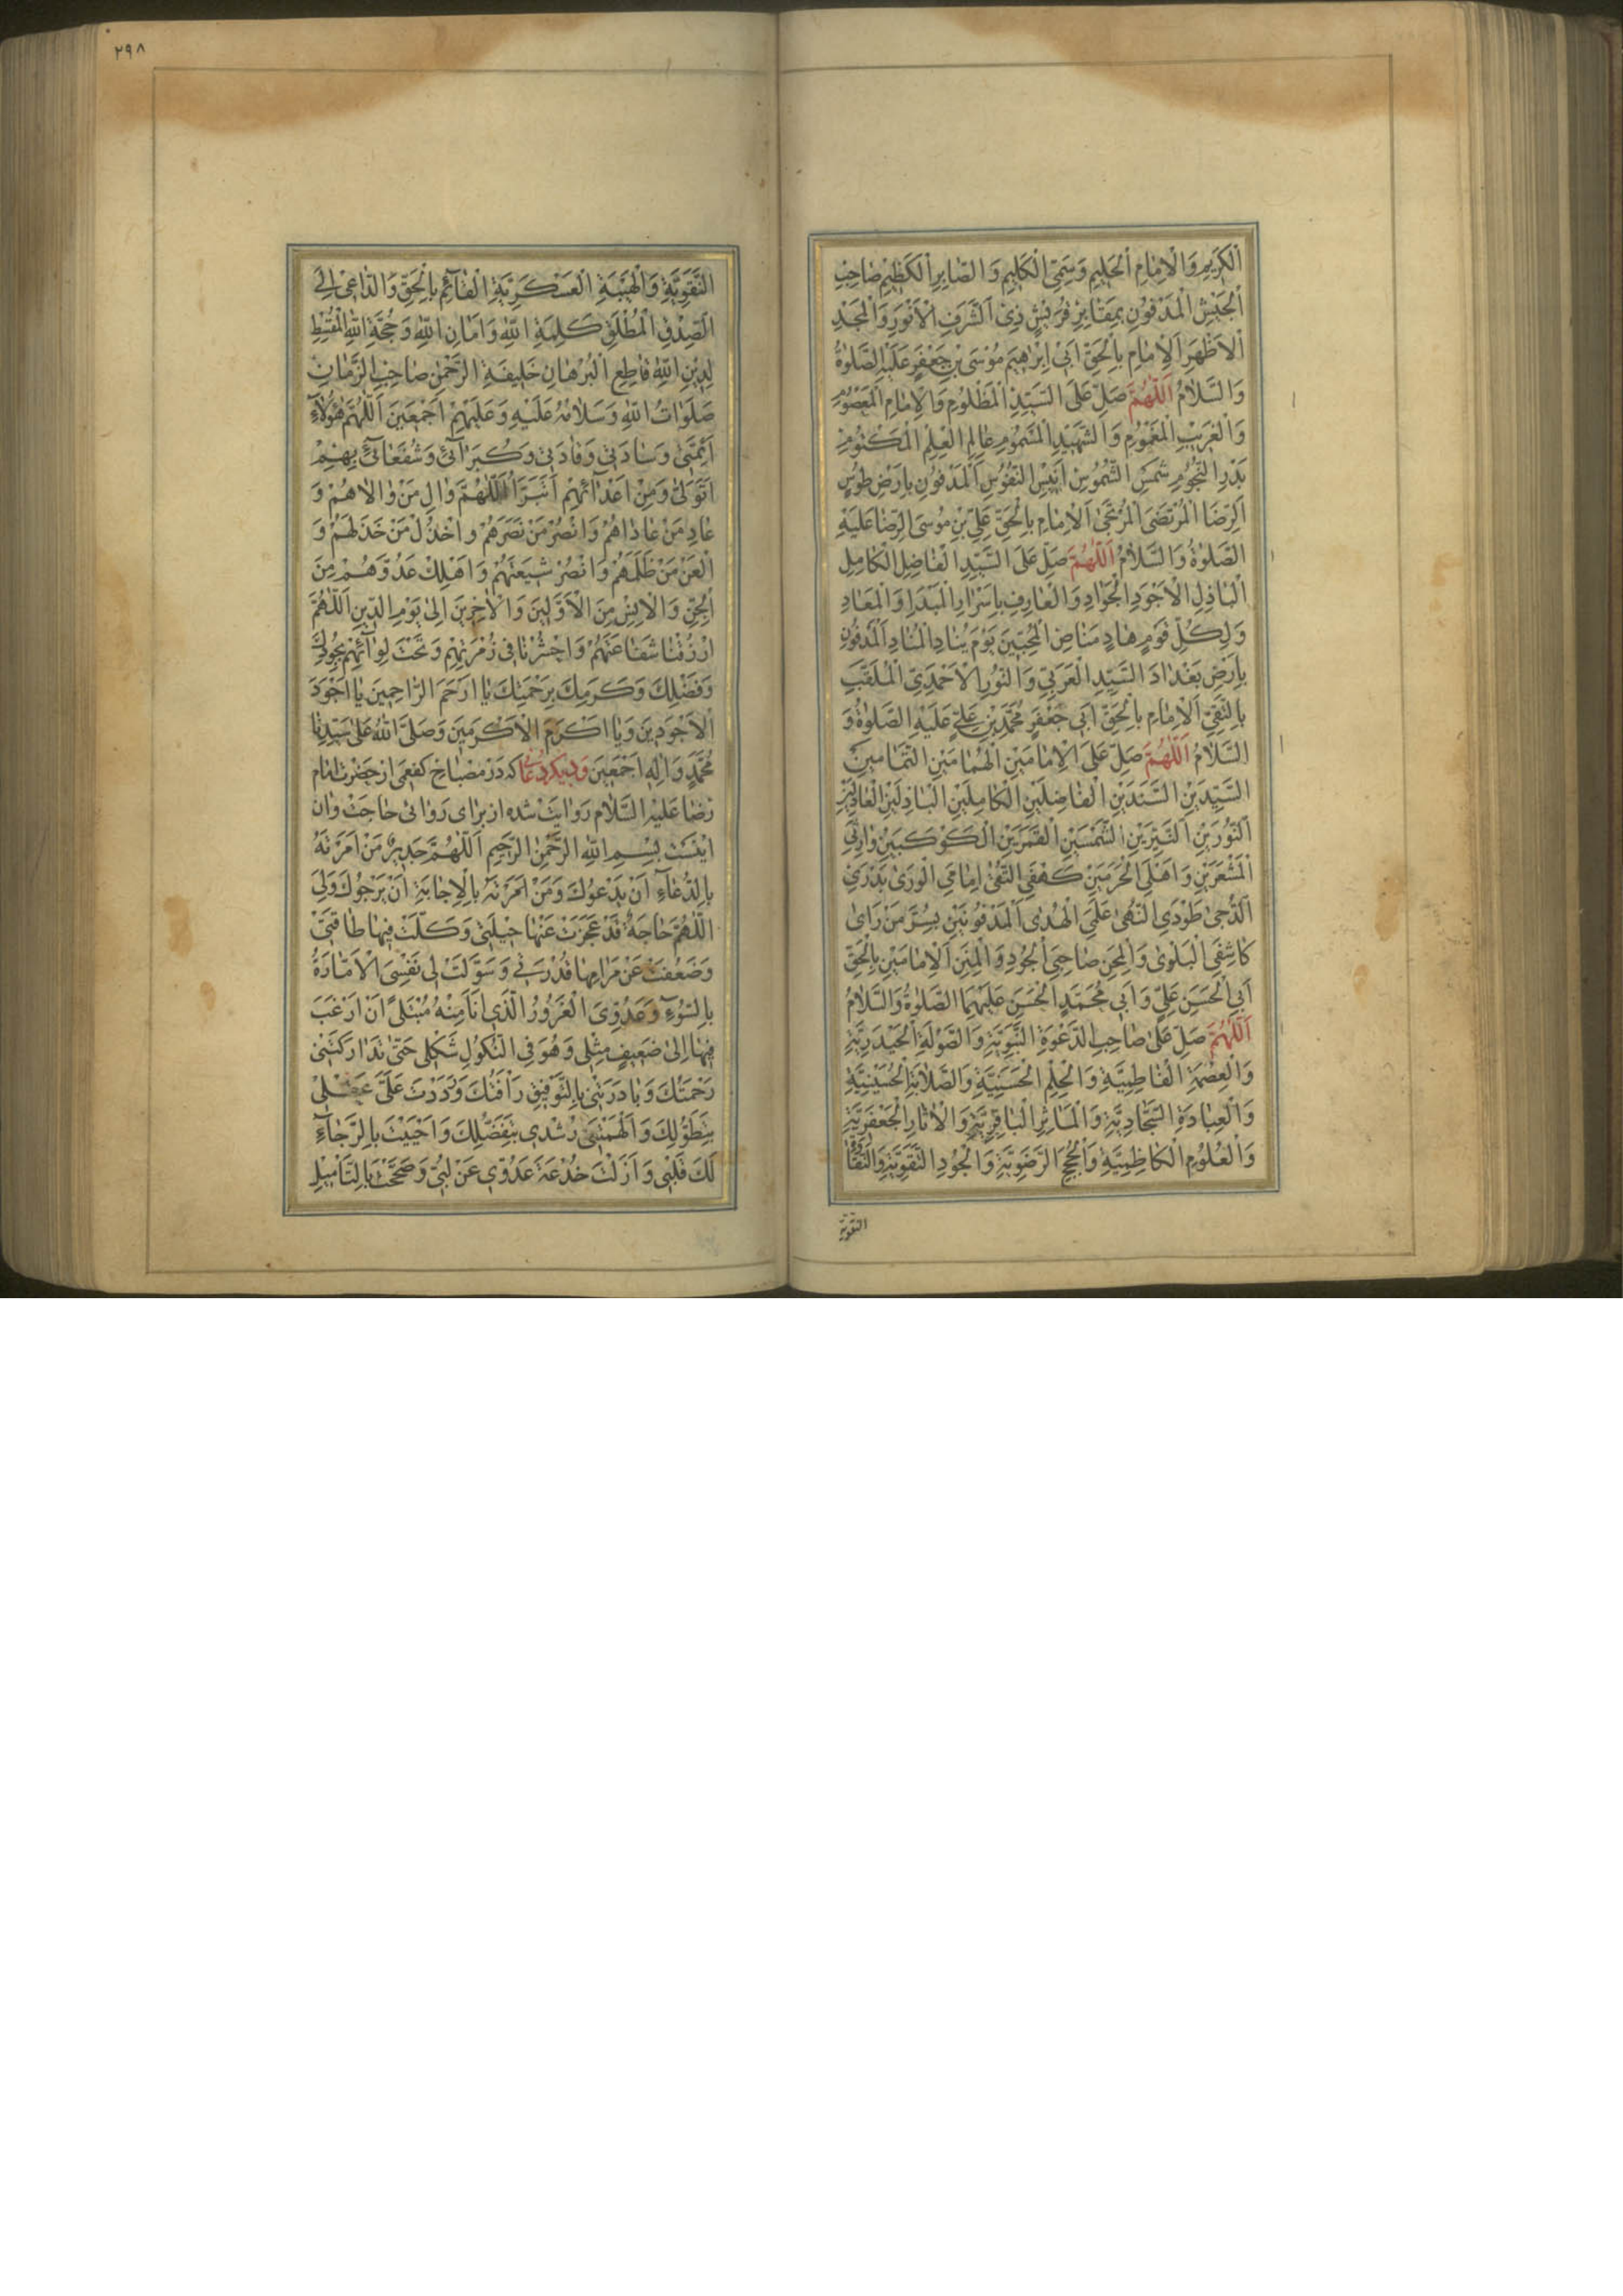 الْكَرِيمِ وَالْاِمٰامِ الْحَلِيمِ وَسَمِيِّ الْكَلِيمِ وَالصّٰابِرِ الْكَظِيمِ صٰاحِبِ
الْجَيْشِ الْمَدْفُونِ بِمَقٰابِرِ قُرَيْشٍ ذِي الشَّرَفِ الْاَنْوَرِ وَالْمَجْدِ
الْاَظْهَرِ اَلْاِمٰامِ بِالْحَقِّ اَبِي اِبْرٰاهِيمَ مُوسَى بْنِ جَعْفَرٍ عَلَيْهِ الصَّلوٰةُ
وَالسَّلٰامُ اَللّٰهُمَّ صَلِّ عَلَى السَّيِّدِ الْمَظْلُومِ وَالْاِمٰامِ الْمَعْصُومِ
وَالْغَرِيْبِ الْمَغْمُومِ وَالشَّهِيْدِ الْمَسْمُومِ عٰالِمِ الْعِلْمِ الْمَكْتُومِ
بَدْرِ النُّجُومِ شَمْسِ الشُّمُوسِ اَنِيْسِ النُّفُوسِ الْمَدْفُونِ بِاَرْضِ طُوسٍ
اَلرِّضَا الْمُرْتَضَى الْمُرْتَجٰى اَلْاِمٰامِ بِالْحَقِّ عَلِيِّ بْنِ مُوسَى الرِّضٰا عَلَيْهِ
الصَّلوٰةُ وَالسَّلٰامُ اَللّٰهُمَّ صَلِّ عَلَى السَّيِّدِ الْفٰاضِلِ الْكٰامِلِ
الْبٰاذِلِ الْاَجْوَدِ الْجَوٰادِ وَالْعٰارِفِ بِاَسْرٰارِ الْمَبْدَاِ وَالْمَعٰادِ
وَلِكُلِّ قَوْمٍ هٰادٍ مَنٰاصِ الْمُحِبِّيْنَ يَوْمَ يُنٰادِ الْمُنٰادِ اَلْمَدْفُونِ
بِاَرْضِ بَغْدٰادَ السَّيِّدِ الْعَرَبِيِّ وَالنُّورِ الْاَحْمَدِيِّ الْمُلَقَّبِ
بِالتَّقِيِّ اَلْاِمٰامِ بِالْحَقِّ اَبِي جَعْفَرٍ مُحَمَّدِ بْنِ عَلِيٍّ عَلَيْهِ الصَّلوٰةُ وَ
السَّلٰامُ اَللّٰهُمَّ صَلِّ عَلَى الْاِمٰامَيْنِ الْهُمٰامَيْنِ التَّمٰامَيْنِ
السَّيِّدَيْنِ السَّنَدَيْنِ الْفٰاضِلَيْنِ الْكٰامِلَيْنِ الْبٰاذِلَيْنِ الْعٰادِلَيْنِ
اَلنُّورَيْنِ النَّيِّرَيْنِ الشَّمْسَيْنِ الْقَمَرَيْنِ الْكَوْكَبَيْنِ وٰارِثَيِ
الْمَشْعَرَيْنِ وَاَهْلَيِ الْحَرَمَيْنِ كَهْفَيِ التُّقٰى اِمٰامَيِ الْوَرٰى بَدْرَيِ
الدُّجٰى طَوْدَيِ النُّهٰى عَلَمَيِ الْهُدٰى اَلْمَدْفُونَيْنِ بِسُرَّ مَنْ رَاٰى
كٰاشِفَيِ الْبَلْوٰى وَالْمِحَنِ صٰاحِبَيِ الْجُودِ وَالْمِنَنِ اَلْاِمٰامَيْنِ بِالْحَقِّ
اَبِي الْحَسَنِ عَلِيٍّ وَاَبِي مُحَمَّدٍ الْحَسَنِ عَلَيْهِمَا الصَّلوٰةُ وَالسَّلٰامُ
اَللّٰهُمَّ صَلِّ عَلٰى صٰاحِبِ الدَّعْوَةِ النَّبَوِيَّةِ وَالصَّوْلَةِ الْحَيْدَرِيَّةِ
وَالْعِصْمَةِ الْفٰاطِمِيَّةِ وَالْحِلْمِ الْحَسَنِيَّةِ وَالصَّلٰابَةِ الْحُسَيْنِيَّةِ
وَالْعِبٰادَةِ السَّجّٰادِيَّةِ وَالْمَاٰثِرِ الْبٰاقِرِيَّةِ وَالْاٰثٰارِ الْجَعْفَرِيَّةِ
وَالْعُلُومِ الْكٰاظِمِيَّةِ وَالْحُجَجِ الرَّضَوِيَّةِ وَالْجُودِ التَّقَوِيَّةِ وَالنَّقٰاوَةِ
النقویة
٢٩٨
النَّقَوِيَّةِ وَالْهَيْبَةِ الْعَسْكَرِيَّةِ الْقٰائِمِ بِالْحَقِّ وَالدّٰاعِي اِلَى
الصِّدْقِ الْمُطْلَقِ كَلِمَةِ اللّٰهِ وَاَمٰانِ اللّٰهِ وَحُجَّةِ اللّٰهِ الْمُقْسِطِ
لِدِيْنِ اللّٰهِ قٰاطِعِ الْبُرْهٰانِ خَلِيفَةِ الرَّحْمٰنِ صٰاحِبِ الزَّمٰانِ
صَلَوٰاتُ اللّٰهِ وَسَلٰامُهُ عَلَيْهِ وَعَلَيْهِمْ اَجْمَعِيْنَ اَللّٰهُمَّ هٰؤُلٰاءِ
اَئِمَّتِي وَسٰادَتِي وَقٰادَتِي وَكُبَرٰائِي وَشُفَعٰائِي بِهِمْ
اَتَوَلّٰى وَمِنْ اَعْدٰائِهِمْ اَتَبَرَّاُ اَللّٰهُمَّ وٰالِ مَنْ وٰالٰاهُمْ وَ
عٰادِ مَنْ عٰادٰاهُمْ وَانْصُرْ مَنْ نَصَرَهُمْ وَاخْذُلْ مَنْ خَذَلَهُمْ وَ
الْعَنْ مَنْ ظَلَمَهُمْ وَانْصُرْ شِيعَتَهُمْ وَاَهْلِكْ عَدُوَّهُمْ مِنَ
الْجِنِّ وَالْاِنْسِ مِنَ الْاَوَّلِيْنَ وَالْاٰخِرِيْنَ اِلٰى يَوْمِ الدِّيْنِ اَللّٰهُمَّ
ارْزُقْنٰا شَفٰاعَتَهُمْ وَاحْشُرْنٰا فِي زُمْرَتِهِمْ وَتَحْتَ لِوٰائِهِمْ بِجُودِكَ
وَفَضْلِكَ وَكَرَمِكَ بِرَحْمَتِكَ يٰا اَرْحَمَ الرّٰاحِمِيْنَ يٰا اَجْوَدَ
الْاَجْوَدِيْنَ وَيٰا اَكْرَمَ الْاَكْرَمِيْنَ وَصَلَّى اللّٰهُ عَلٰى سَيِّدِنٰا
مُحَمَّدٍ وَاٰلِهِ اَجْمَعِيْنَ وديكر دعا كه در مصباح كفعمى از حضرت امام
رضا عليه السلام روايت شده از براى روائى حاجت وان
اينست بِسْمِ اللّٰهِ الرَّحْمٰنِ الرَّحِيمِ اَللّٰهُمَّ جَدِيرٌ مَنْ اَمَرْتَهُ
بِالدُّعٰاءِ اَنْ يَدْعُوكَ وَمَنْ اَمَرْتَهُ بِالْاِجٰابَةِ اَنْ يَرْجُوكَ وَلِيَ
اللّٰهُمَّ حٰاجَةٌ قَدْ عَجَزَتْ عَنْهٰا حِيْلَتِي وَكَلَّتْ فِيهٰا طٰاقَتِي
وَضَعُفَتْ عَنْ مَرٰامِهٰا قُدْرَتِي وَسَوَّلَتْ لِي نَفْسِيَ الْاَمّٰارَةُ
بِالسُّوءِ وَعَدُوِّيَ الْغَرُورُ الَّذِي اَنَا مِنْهُ مُبْتَلًى اَنْ اَرْغَبَ
فِيهٰا اِلٰى ضَعِيفٍ مِثْلِي وَهُوَ فِي النُّكُولِ شَكْلِي حَتّٰى تَدٰارَكَتْنِي
رَحْمَتُكَ وَبٰادَرَتْنِي بِالتَّوْفِيقِ رَاْفَتُكَ وَرَدَدْتَ عَلَيَّ عَقْلِي
بِتَطَوُّلِكَ وَاَلْهَمْتَنِي رُشْدِي بِتَفَضُّلِكَ وَاَحْيَيْتَ بِالرَّجٰاءِ
لَكَ قَلْبِي وَاَزَلْتَ خُدْعَةَ عَدُوِّي عَنْ لُبِّي وَصَحَّحْتَ بِالتَّاْمِيْلِ